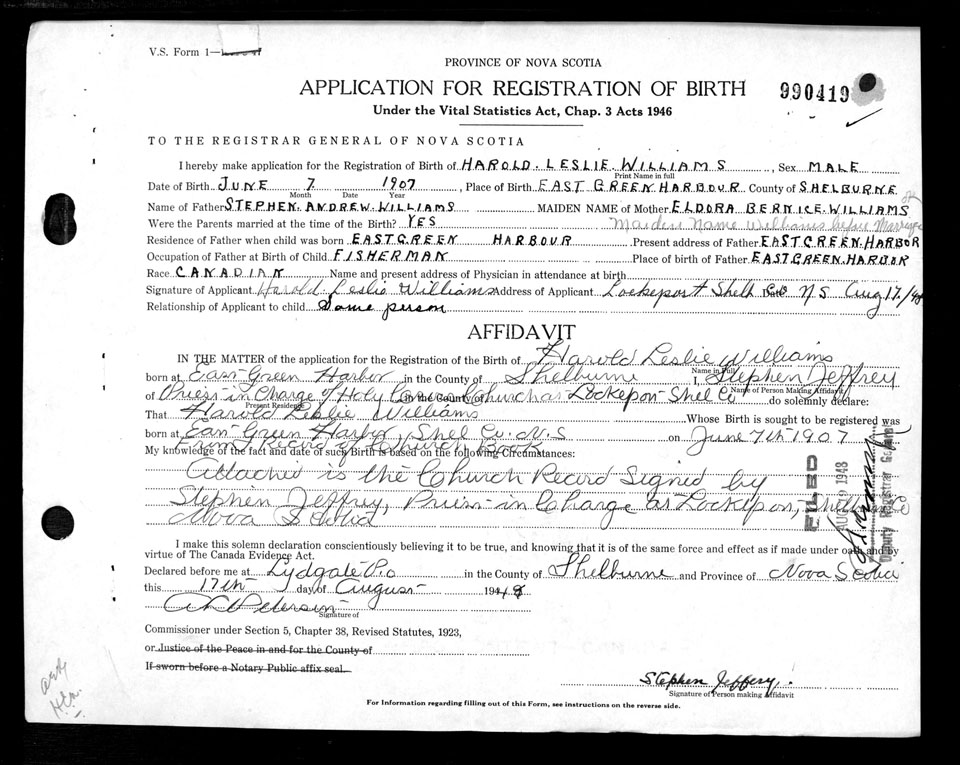 V.S. Form 1—
PROVINCE OF NOVA SCOTIA
APPLICATION FOR REGISTRATION OF BIRTH
990419
Under the Vital Statistics Act, Chap. 3 Acts 1946
TO THE REGISTRAR GENERAL OF NOVA SCOTIA
I hereby make application for the Registration of Birth of HAROLD. LESLIE. WILLIAMS, Sex MALE
Print Name in full
Date of Birth JUNE 7 1907, Place of Birth EAST GREEN HARBOUR County of SHELBURNE
Month Date Year
Name of Father STEPHEN ANDREW WILLIAMS MAIDEN NAME of Mother ELDORA BERNICE WILLIAMS
Were the Parents married at the time of the Birth? YES Maiden Name Williams before Marriage
Residence of Father when child was born EAST GREEN HARBOUR Present address of Father EAST GREEN. HARBOR
Occupation of Father at Birth of Child FISHERMAN Place of birth of Father EAST GREEN. HARBOR
Race CANADIAN Name and present address of Physician in attendance at birth
Signature of Applicant Harold Leslie Williams Address of Applicant Lockeport Shelb Co Date N S Aug 17/48
Relationship of Applicant to child Same person
AFFIDAVIT
IN THE MATTER of the application for the Registration of the Birth of Harold Leslie Williams
Name in Full
born at East Green Harbor in the County of Shelburne I, Stephen Jeffrey
Name of Person Making Affidavit
of Priest in Charge of Holy Cross Church at Lockeport Shel Co do solemnly declare:
Present Residence in the County of
That Harold Leslie Williams Whose Birth is sought to be registered was
born at East Green Harbor, Shel Co. N.S on June 7th 1907
My knowledge of the fact and date of such Birth is based on the following Circumstances:
from record of Church Book
Attached is the Church Record Signed by
Stephen Jeffrey, Priest in Charge at Lockeport, Shelb Co
Nova Scotia
FILED
AUG 1948
Deputy Registrar General
I make this solemn declaration conscientiously believing it to be true, and knowing that it is of the same force and effect as if made under oath and by
virtue of The Canada Evidence Act.
Declared before me at Lydgate P.o in the County of Shelburne and Province of Nova Scotia
this 17th day of August 1948
Signature of
Commissioner under Section 5, Chapter 38, Revised Statutes, 1923,
or Justice of the Peace in and for the County of
If sworn before a Notary Public affix seal.
Stephen Jeffery.
Signature of Person making Affidavit
For Information regarding filling out of this Form, see instructions on the reverse side.